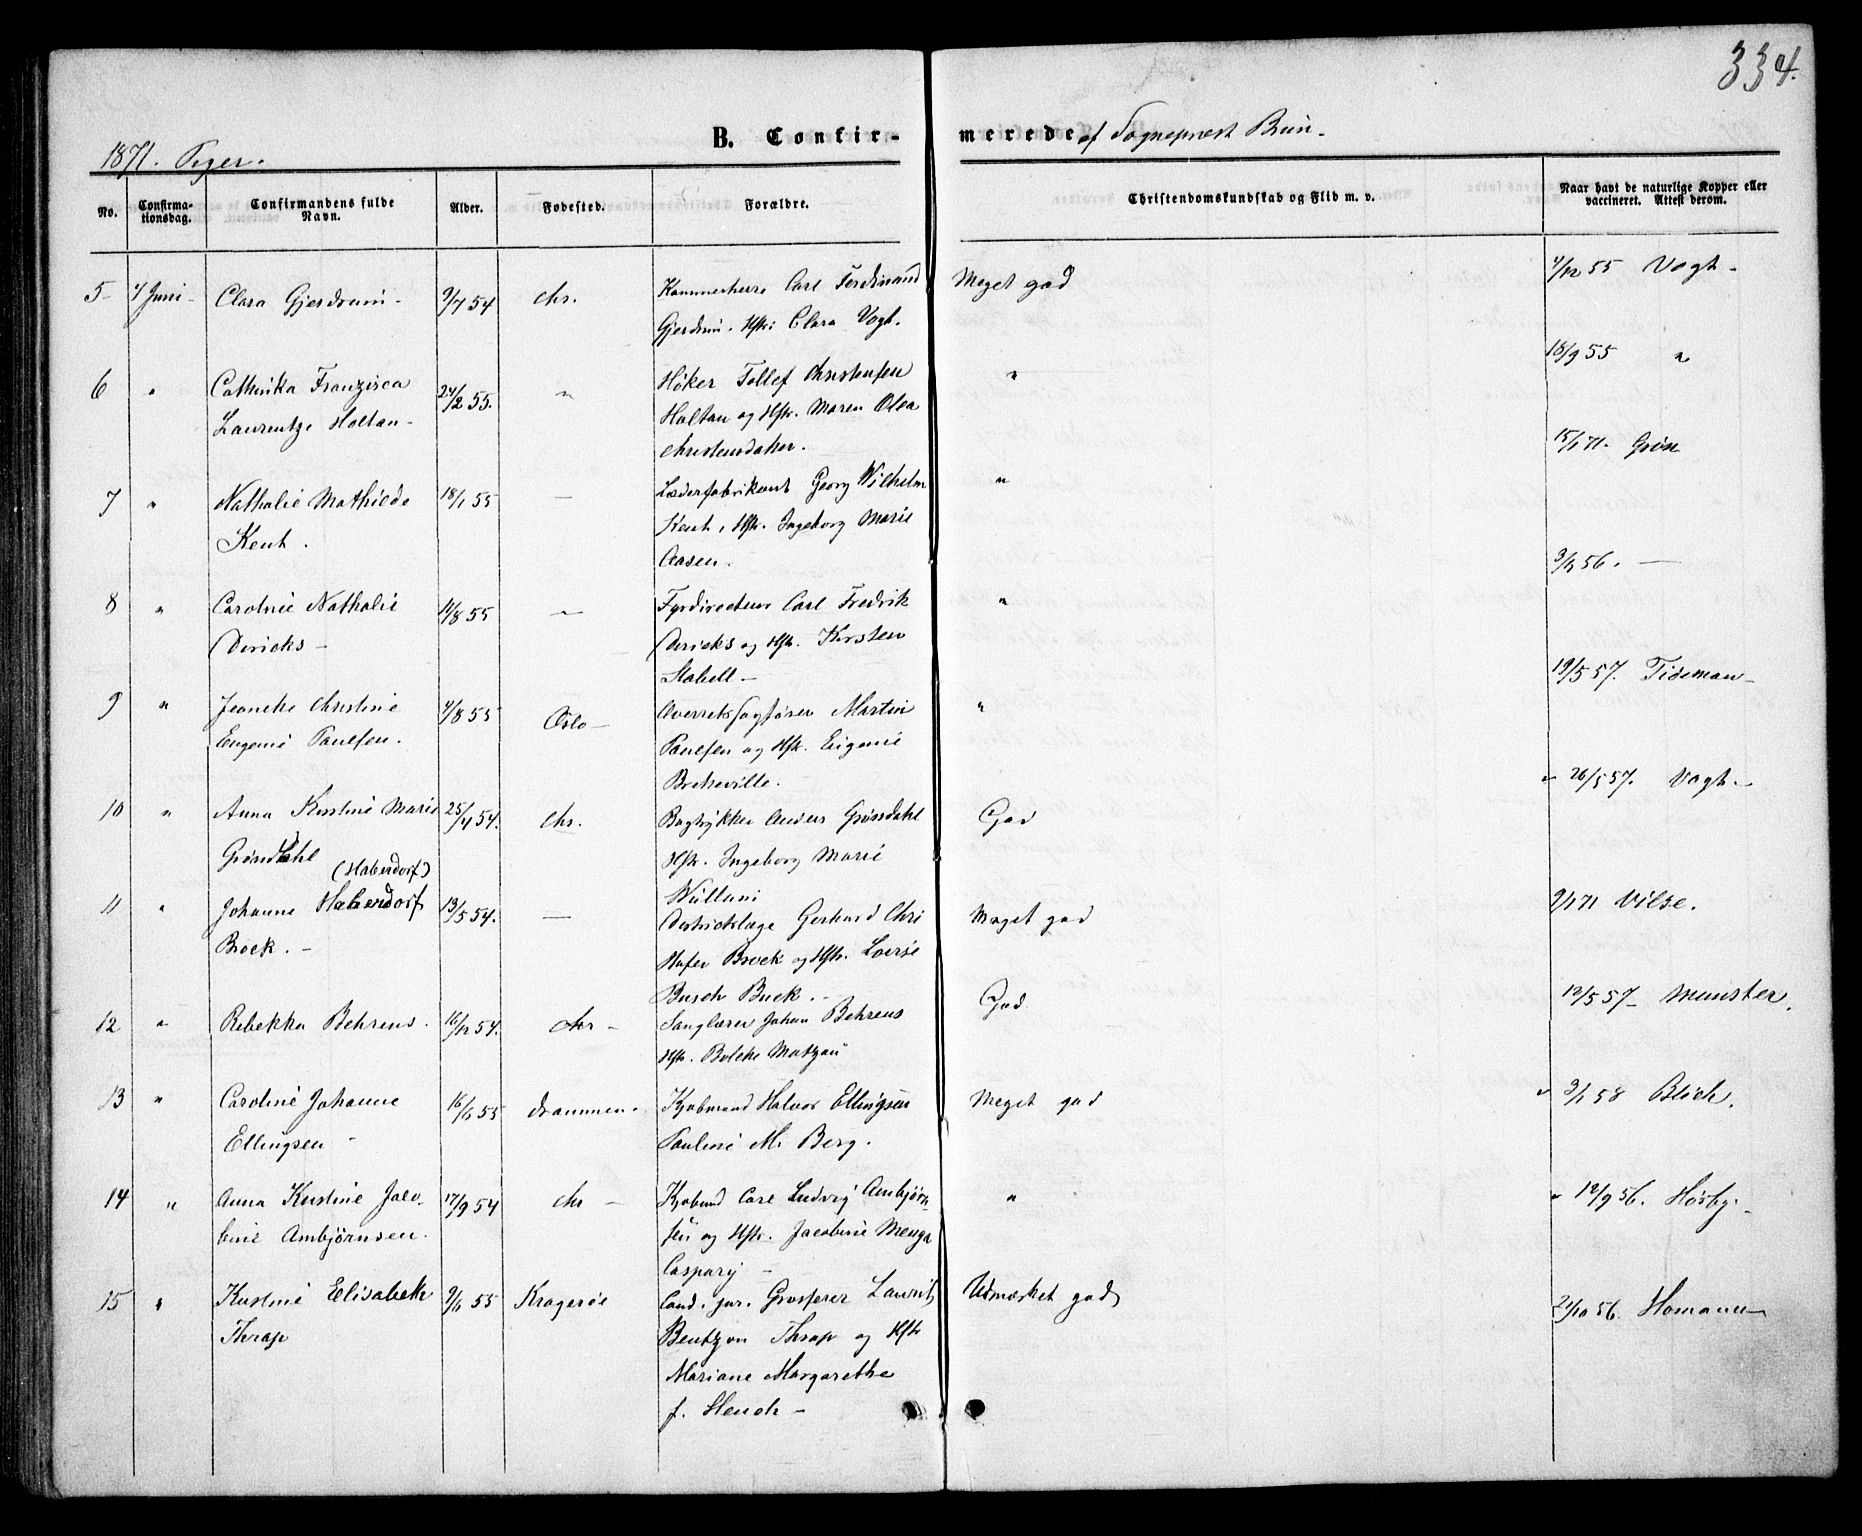 334.
B. Confirmerede af Sognepræst Bruun.
1871. Piger.
No.
Confirmationsdag.
Confirmandens fulde Navn.
Alder.
Fødested.
Forældre.
Christendomskundskab og Flid m. v.
Naar havt de naturlige Kopper eller vaccineret. Attest derom.
5 4 Juni Clara Gjerdrum 9/7 54 Chr. Kammerherre Carl Ferdinand Meget god 4/12 55 Vogt
Gjerdrum. Hstr: Clara Vogt.
6 " Cathinka Franzisca 24/2 55. " Høker Tollef Christensen " 18/9 55 "
Laurentze Holtan Holtan og Hstr. Maren Olea
Christensdatter.
7 " Nathalie Mathilde 18/1 55 — Læderfabrikant Georg Wilhelm " 15/1 71. Grøn
Kent. Kent, Hstr. Ingeborg Marie
Aasen.
8 " Caroline Nathalie 11/8 55 — Fyrdirecteur Carl Fredrik " 56. —
Diricks Diricks og Hstr. Kirsten
Stabell
9 " Jeanette Christine 4/8 55 Oslo Overretssagfører Martin " 19/5 57. Tideman
Eugenie Paulsen. Paulsen og Hstr. Eugenie
Bretteville.
10 " Anna Kirstine Marie 25/4 54. Chr. Bogtrykker Anders Grøndahl God 26/5 57. Vogt
Grøndahl Hstr. Ingeborg Marie
(Haberdorf)
11 " Johanne Haberdorf 13/5 54. — Districktslæge Gerhard Chri Meget god 9/1 71 Vilse.
Brock. stofer Brock og Hstr. Lovise
Busch Buck.
12 " Rebekka Behrens. 16/12 54. Chr Sanglærer Johan Behrens God 12/5 57 Munster.
Hstr. Bolette
13 " Caroline Johanne 16/1 55 Drammen Kjøbmand Halvor Ellingsen Meget god 3/1 58 Blich.
Ellingsen Pauline M. Berg.
14 " Anna Kirstine Jaco- 17/9 54 Chr Kjøbmd Carl Ludvig Ambjørn- " 12/9 56. Hørbÿ
bine Ambjørnsen. sen og Hstr. Jacobine Menga
Caspary
15 " Kirstine Elisabeth 9/1 55 Kragerøe Cand. jur. Grosserer Laurits Udmærket god 21/10 56. Homann
Thrap Bentzon Thrap og Hstr
Mariane Margarethe
f. Heuch